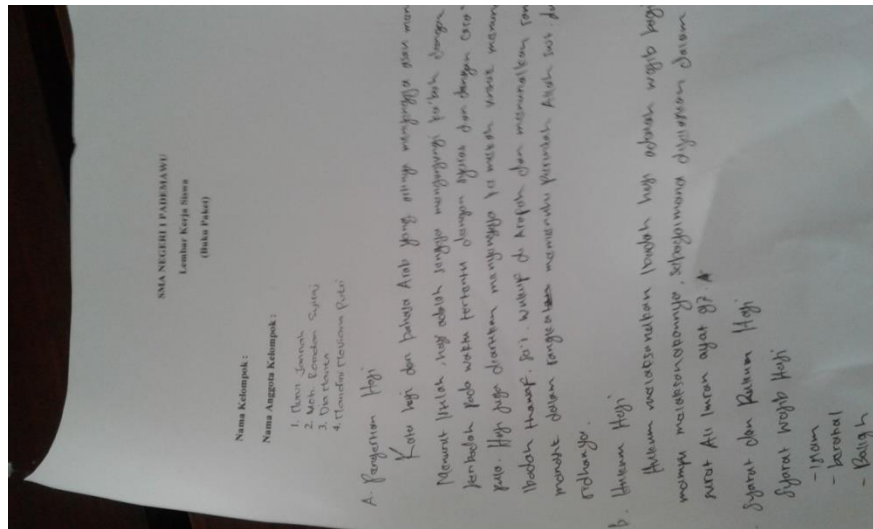 SMA NEGERI 1 PADEMAWU
Lembar Kerja Siswa
(Buku Paket)
Nama Kelompok :
Nama Anggota Kelompok :
1. Jannah
2. Moh. Romadon
3.
4. Maulana Putri
A. Pengertian Haji
Kata haji dari bahasa Arab yang artinya mengunjungi atau
Menurut Istilah, haji adalah sengaja mengunjungi ka'bah dengan
beribadah pada waktu tertentu dengan syarat dan dengan cara
pula. Haji juga diartikan mengunjungi ke mekah untuk
Ibadah thawaf, sa'i, wukuf di Arafah dan menunaikan
manasik dalam rangka memenuhi perintah Allah swt.
ridhanya.
b. Hukum Haji
Hukum melaksanakan ibadah haji adalah wajib bagi
mampu melaksanakannya, sebagaimana dijelaskan dalam
surat Ali Imran ayat 97.
Syarat dan Rukun Haji
Syarat wajib Haji
- Islam
- berakal
- Baligh